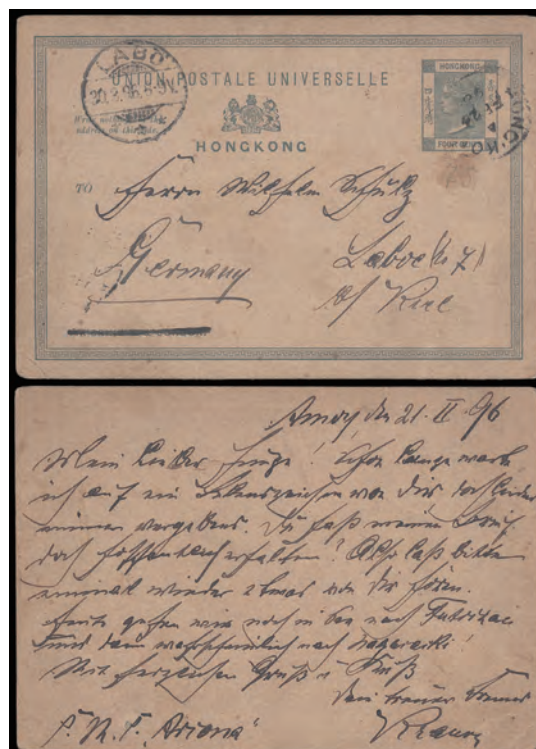 LABOE
30.3.96.8-9V.
UNION POSTALE UNIVERSELLE
HONGKONG
HONGKONG
TO Herrn Wilhelm Schulz
Germany
Laboe
b/ Kiel
Amoy den 21. II. 96
Mein lieber Junge! Schon lange warte
ich auf ein Lebenszeichen von dir doch leider
immer vergebens. Du hast meinen Brief
doch hoffentlich erhalten? Also laß bitte
einmal wieder etwas von dir hören.
Heute gehen wir noch in See nach
und dann wahrscheinlich nach Nagasaki!
Mit herzlichem Gruß u. Kuß
Dein treuer Freund